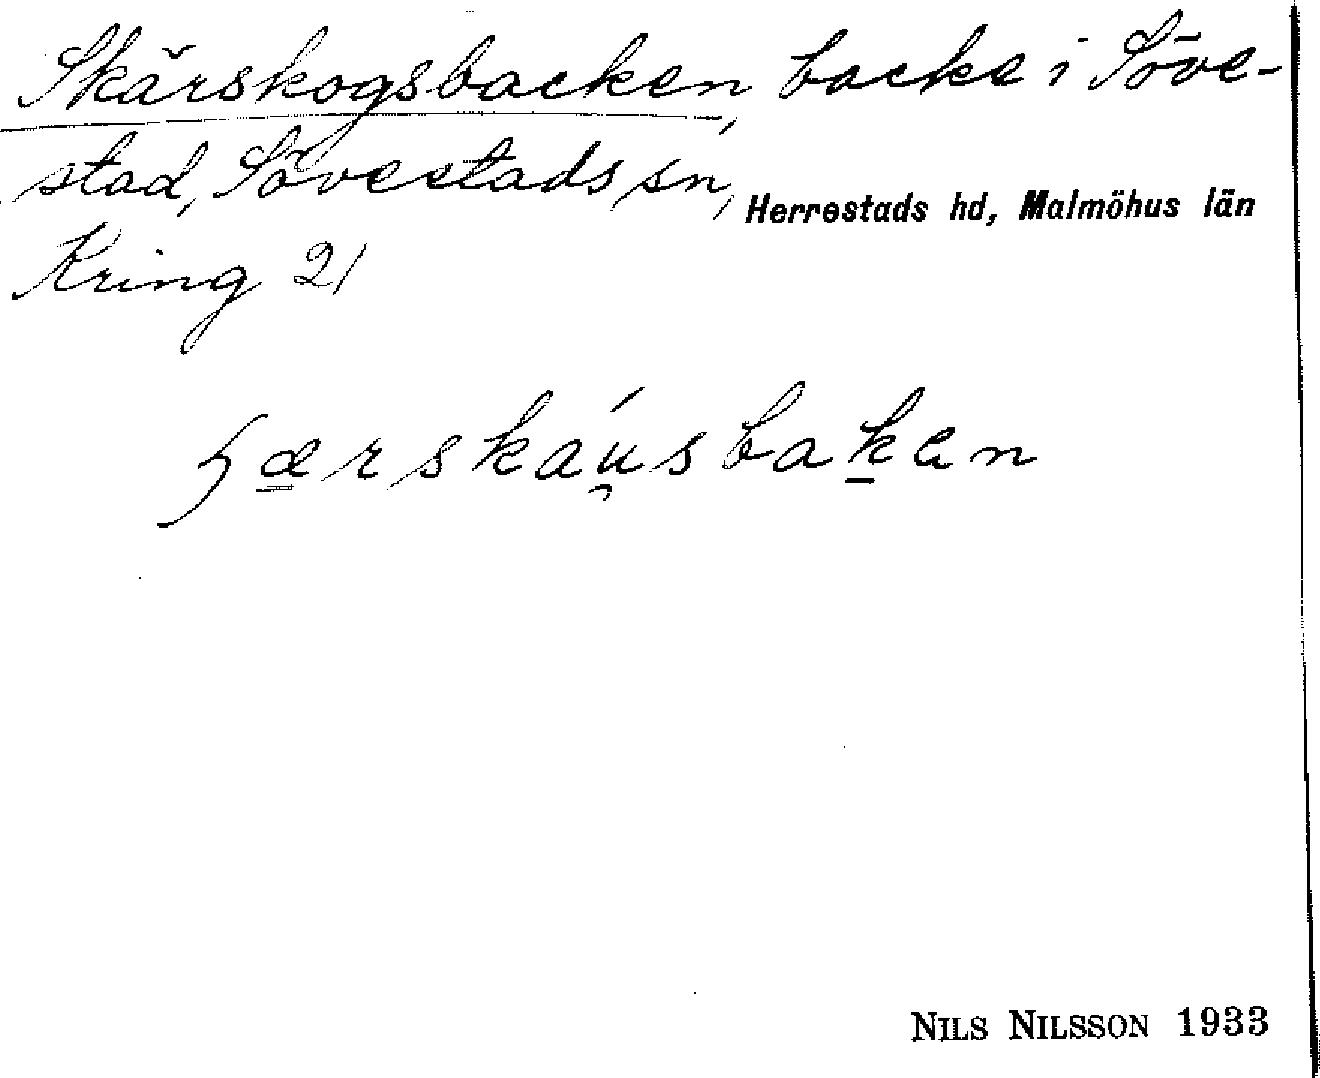 Skärskogsbacken, backe i Söve-
stad, Sövestads sn, Herrestads hd, Malmöhus län
Kring 21
ʂærskáu̯sbaken
NILS NILSSON 1933